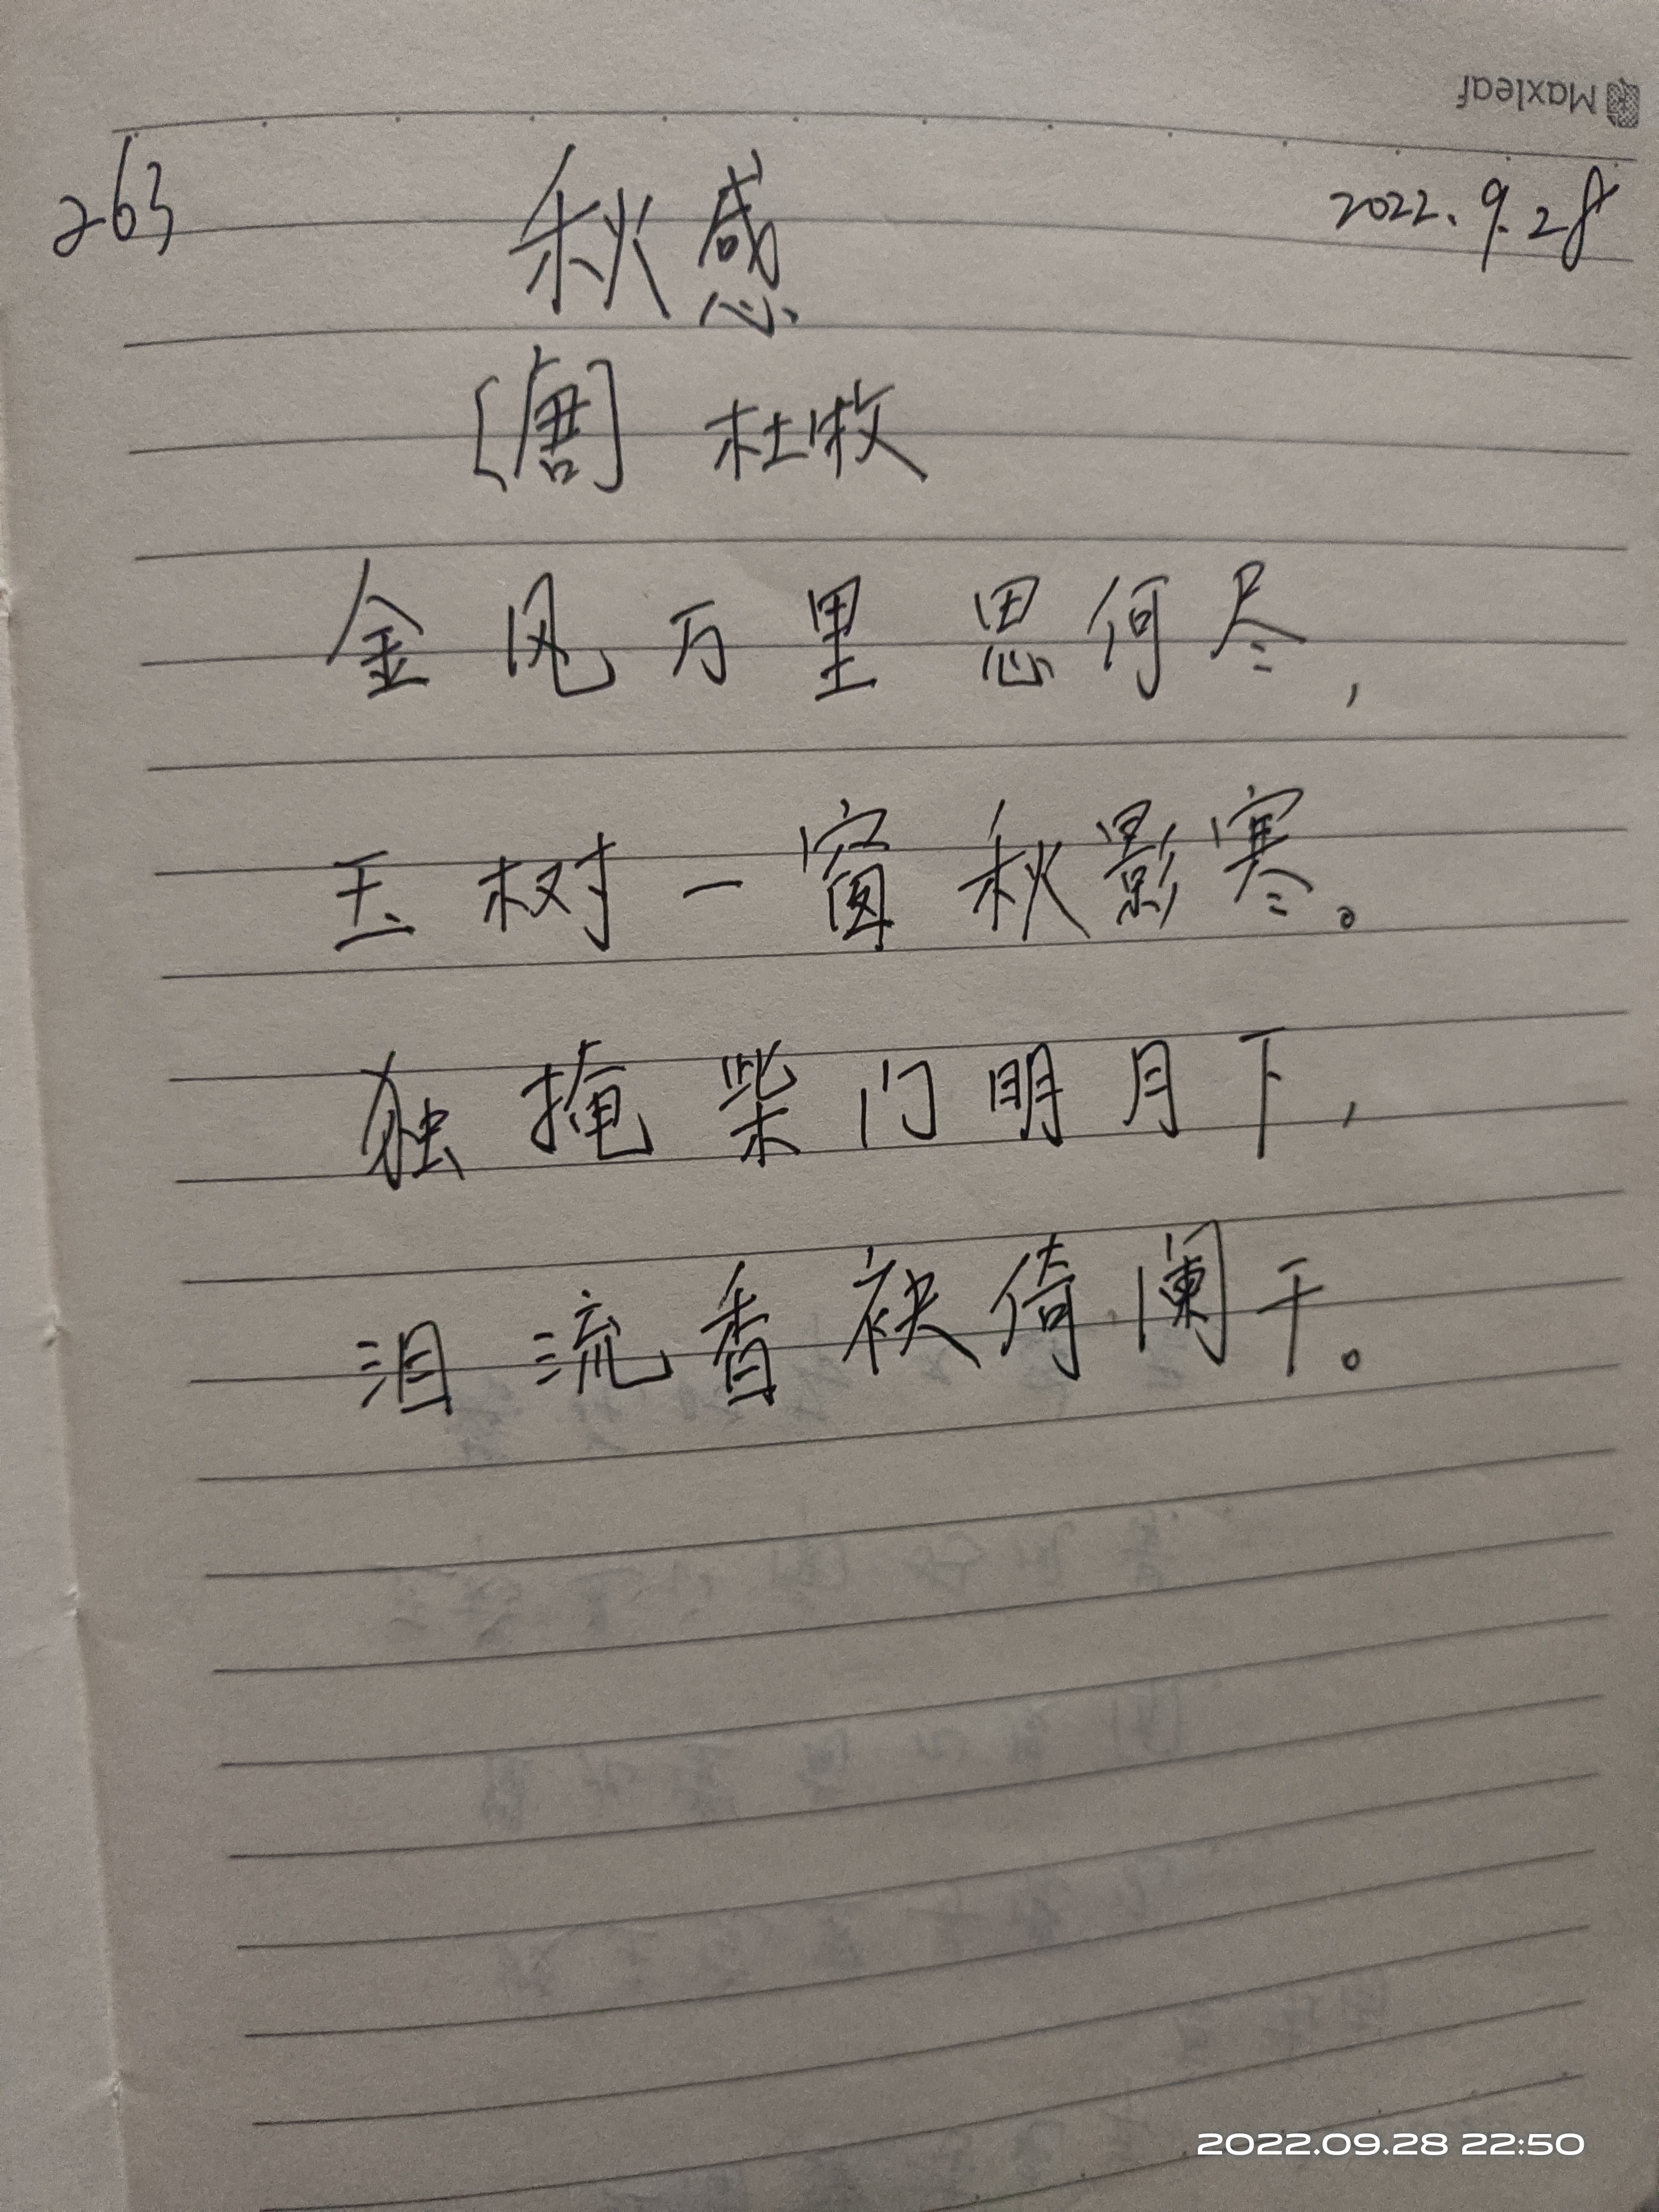 Maxleaf
263 秋感 2022.9.28
[唐] 杜牧
金风万里思何尽,
玉树一窗秋影寒。
独掩柴门明月下,
泪流香袂倚阑干。
2022.09.28 22:50